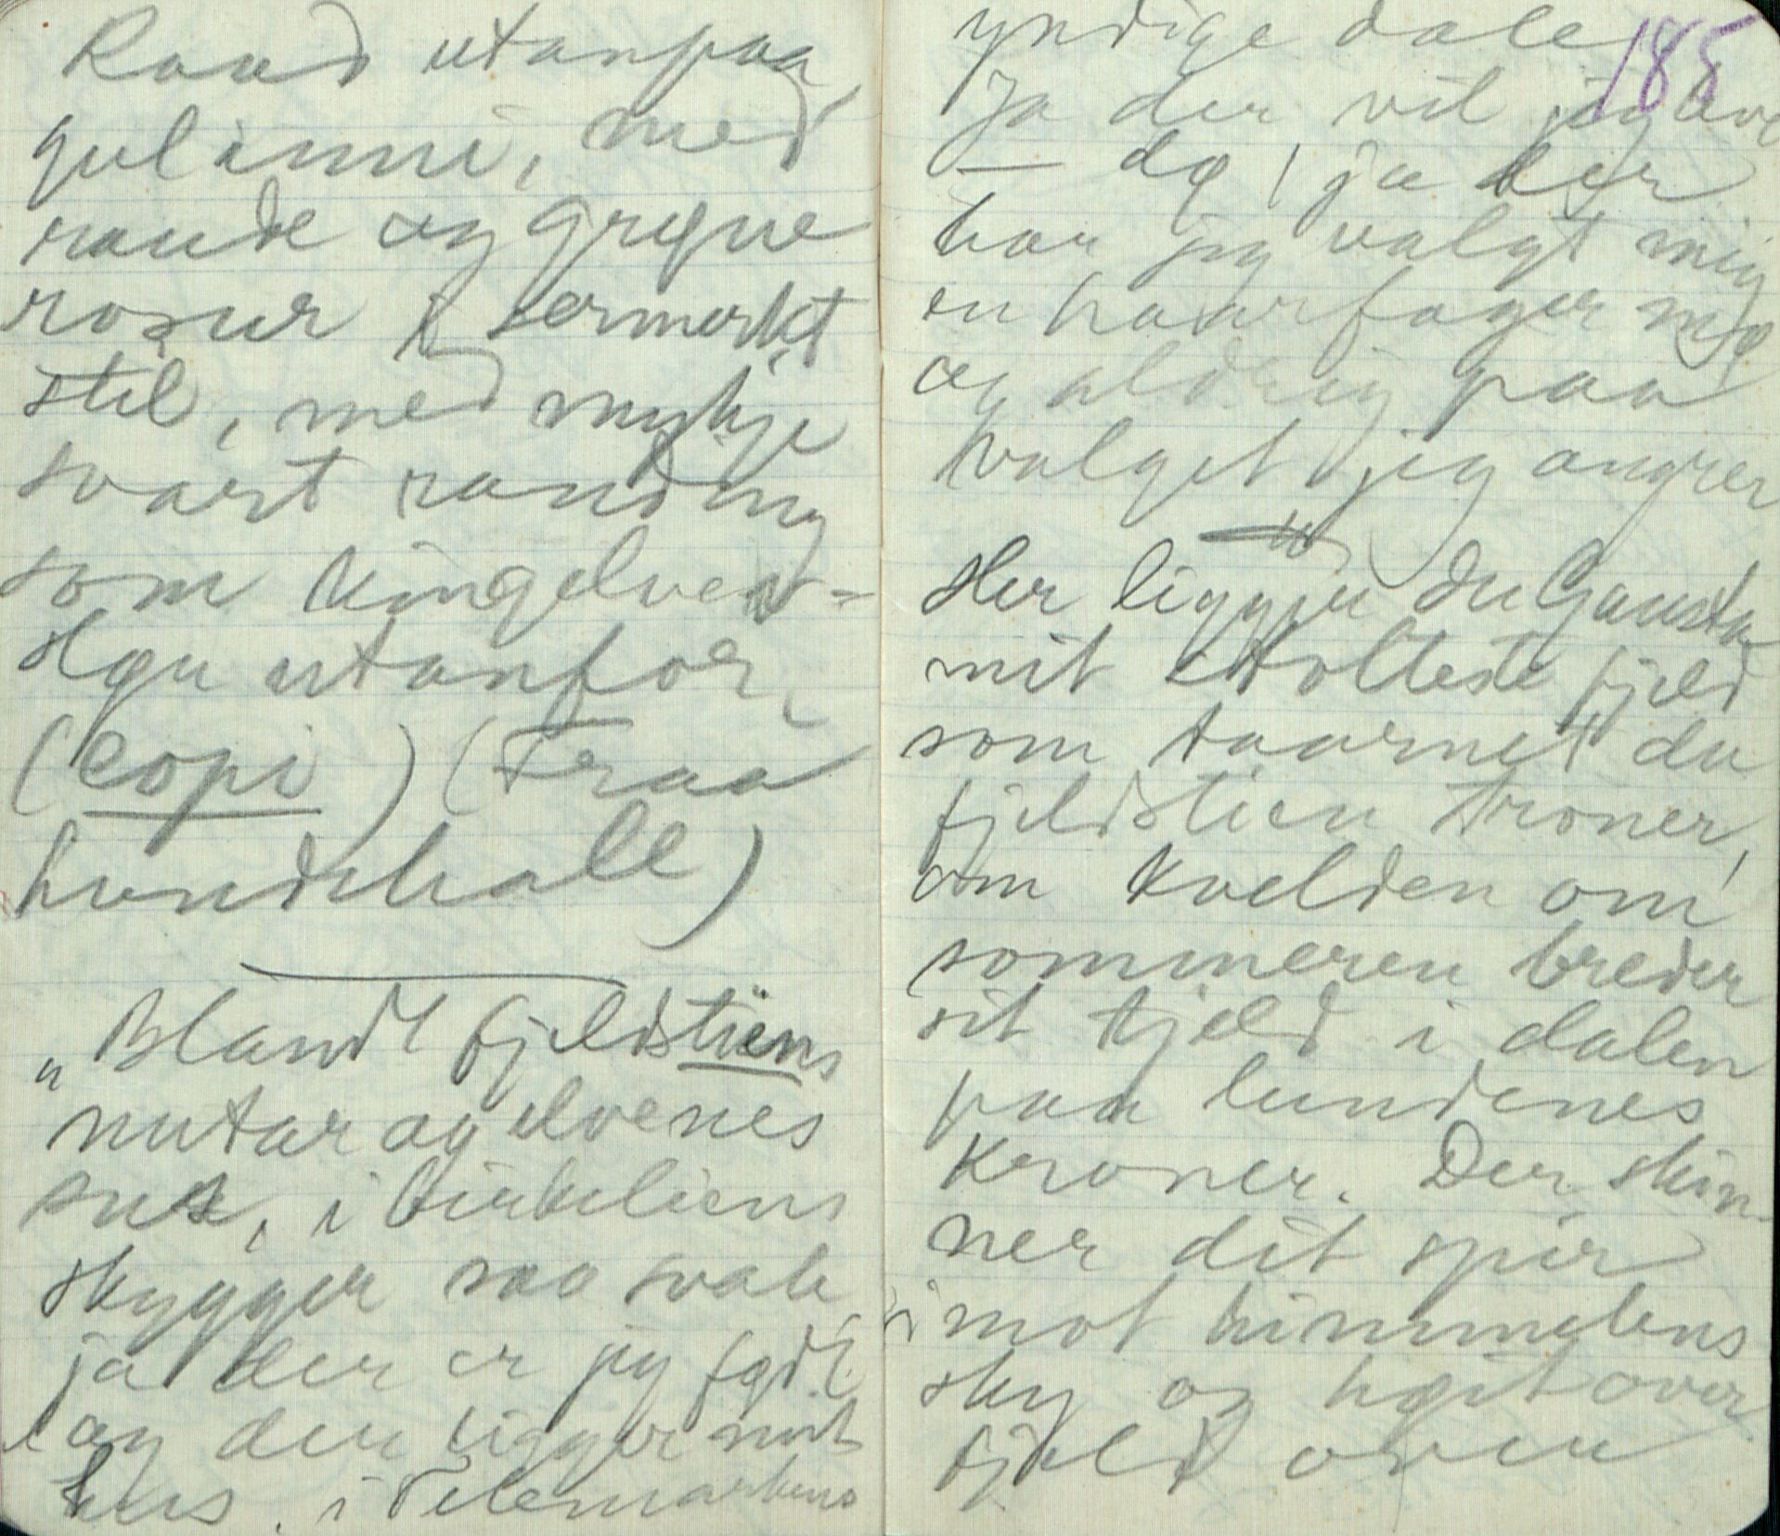 Raud utanpaa
gul inni, med
raude og grøne
rosur i sermerkt
stil, med mykje
svart randing
som kingelvev-
slgu utanfor,
(copi) (Fraa
Lundekall)
"Blandt fjeldstiens
nutar og elvenes
sus, i birkeliens
skygger saa svale
ja der er jeg født
og der ligger mit
hus, i Telemarkens
yndige dale
185
Ja der vil jeg leve
— dø, ja der
har jeg valgt mig
en haarfager mø
og aldrig paa
valget jeg angrer
Her ligger du Gausta
mit stolteste fjeld
som taarnet du
fjeldstien troner,
om kvelden om
sommeren breder
sit tjeld i dalen
paa lundenes
kroner. Der skin-
ner dit spir
imot himmelens
sky og høit over
fjeld oven